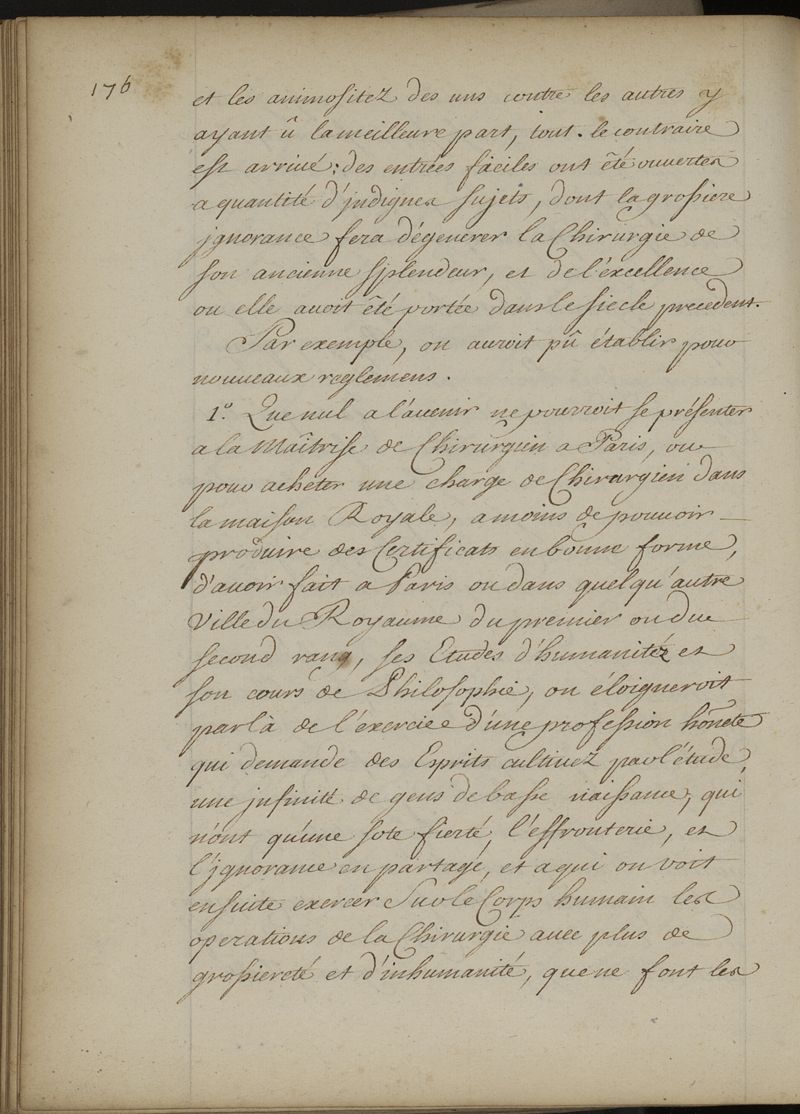 176
et les animositez des uns contre les autres y
ayant û la meilleure part, tout le contraire
est arrivé : des entrées faciles ont êté ouvertes
a quantité d'jndignes sujets, dont la grossiere
jgnorance fera dégenerer la Chirurgie de
son ancienne splendeur, et de l'excellence
ou elle avoit êté portée dans le siecle precedent.
Par exemple, on auroit pû établir pour
nouveaux reglemens.
1.º Que nul a l'avenir ne pourroit se présenter
a la Maîtrise de Chirurgien a Paris, ou
pour acheter une charge de Chirurgien dans
la maison Royale, a moins de pouvoir
produire des Certificats en bonne forme,
d'avoir fait a Paris ou dans quelqu'autre
Ville du Royaume du premier ou du
second rang, ses Etudes d'humanitéz et
son cours de Philosophie, on éloigneroit
par là de l'exercice d'une profession hônete
qui demande des Esprits cultivez par l'étude,
une jnfinité de gens de basse naissance, qui
n'ont qu'une sote fierté, l'effronterie, et
l'jgnorance en partage, et a qui on voit
ensuite exercer Sur le Corps humain les
operations de la Chirurgie avec plus de
grossiereté et d'inhumanité, que ne font les